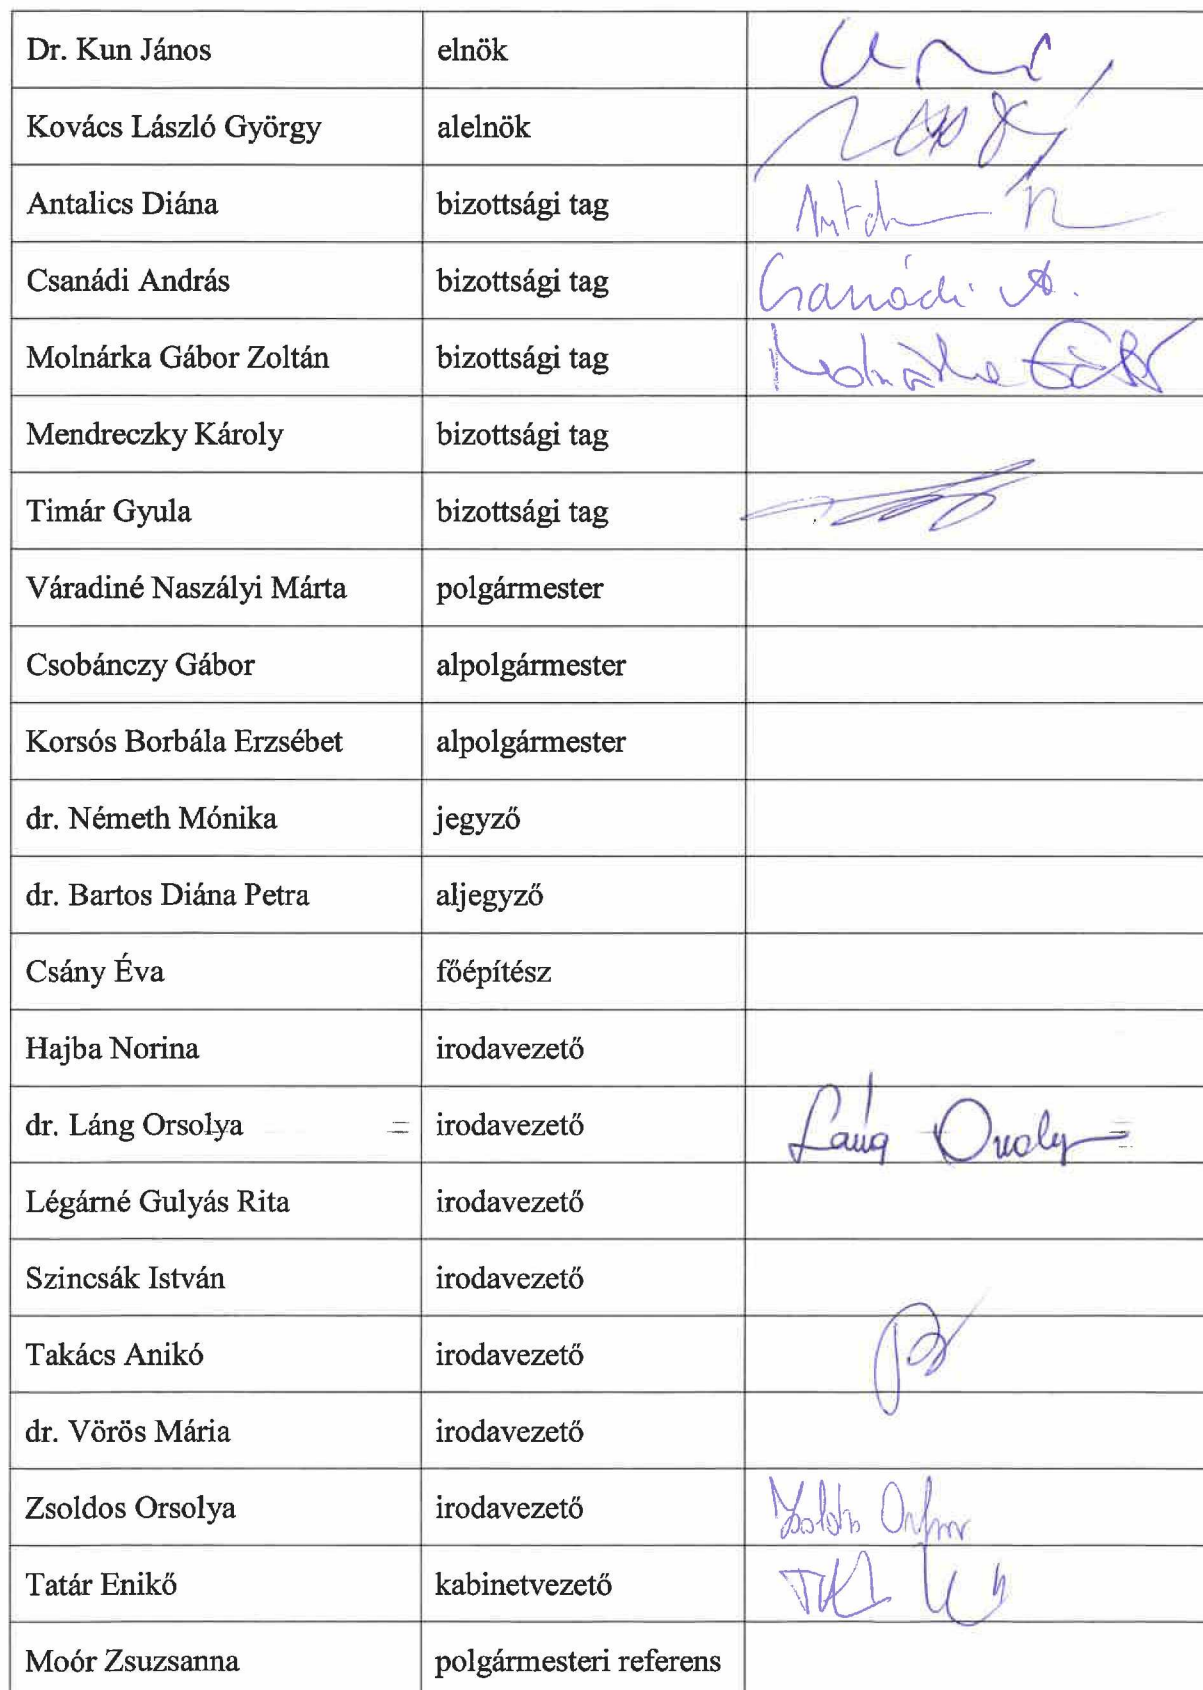 Dr. Kun János elnök
Kovács László György alelnök
Antalics Diána bizottsági tag
Csanádi András bizottsági tag Csanádi A.
Molnárka Gábor Zoltán bizottsági tag Molnárka Gábor
Mendreczky Károly bizottsági tag
Timár Gyula bizottsági tag
Váradiné Naszályi Márta polgármester
Csobánczy Gábor alpolgármester
Korsós Borbála Erzsébet alpolgármester
dr. Németh Mónika jegyző
dr. Bartos Diána Petra aljegyző
Csány Éva főépítész
Hajba Norina irodavezető
dr. Láng Orsolya irodavezető Láng Orsolya
Légárné Gulyás Rita irodavezető
Szincsák István irodavezető
Takács Anikó irodavezető
dr. Vörös Mária irodavezető
Zsoldos Orsolya irodavezető
Tatár Enikő kabinetvezető
Moór Zsuzsanna polgármesteri referens